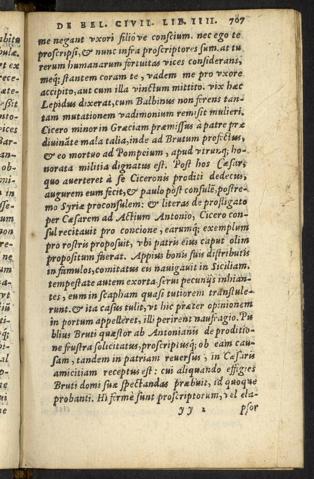 DE BEL. CIVIL. LIB. IIII. 707
me negant vxori filióve conscium. nec ego te
proscripsi, & nunc infra proscriptores sum. at tu
rerum humanarum fortuitas vices considerans,
meq́; stantem coram te, vadem me pro vxore
accipito, aut cum illa vinctum mittito. vix hæc
Lepidus dixerat, cum Balbinus non ferens tan-
tam mutationem vadimonium remisit mulieri.
Cicero minor in Græciam præmissus à patre præ
diuinãte mala talia, inde ad Brutum profectus,
& eo mortuo ad Pompeium, apud vtrunq; ho-
norata militia dignatus est. Post hos Cæsar,
quo auerteret à se Ciceronis proditi dedecus,
augurem eum fecit, & paulo pòst consulẽ, postre-
mo Syriæ proconsulem: & literas de profligato
per Cæsarem ad Actium Antonio, Cicero con-
sul recitauit pro concione, earumq; exemplum
pro rostris proposuit, vbi patris eius caput olim
propositum fuerat. Appius bonis suis distributis
in famulos, comitatus eis nauigauit in Siciliam.
tempestate autem exorta serui pecunijs inhian-
tes, eum in scapham quasi tutiorem transtule-
runt. & ita casus tulit, vt hic præter opinionem
in portum appelleret, illi perirent naufragio. Pu
blius Bruti quæstor ab Antonianis de proditio-
ne frustra solicitatus, proscriptusq́; ob eam cau-
sam, tandem in patriam reuersus, in Cæsaris
amicitiam receptus est: cui aliquando effigies
Bruti domi suæ spectandas præbuit, id quoque
probanti. Hi fermè sunt proscriptorum, vel ela-
yy 2 psor